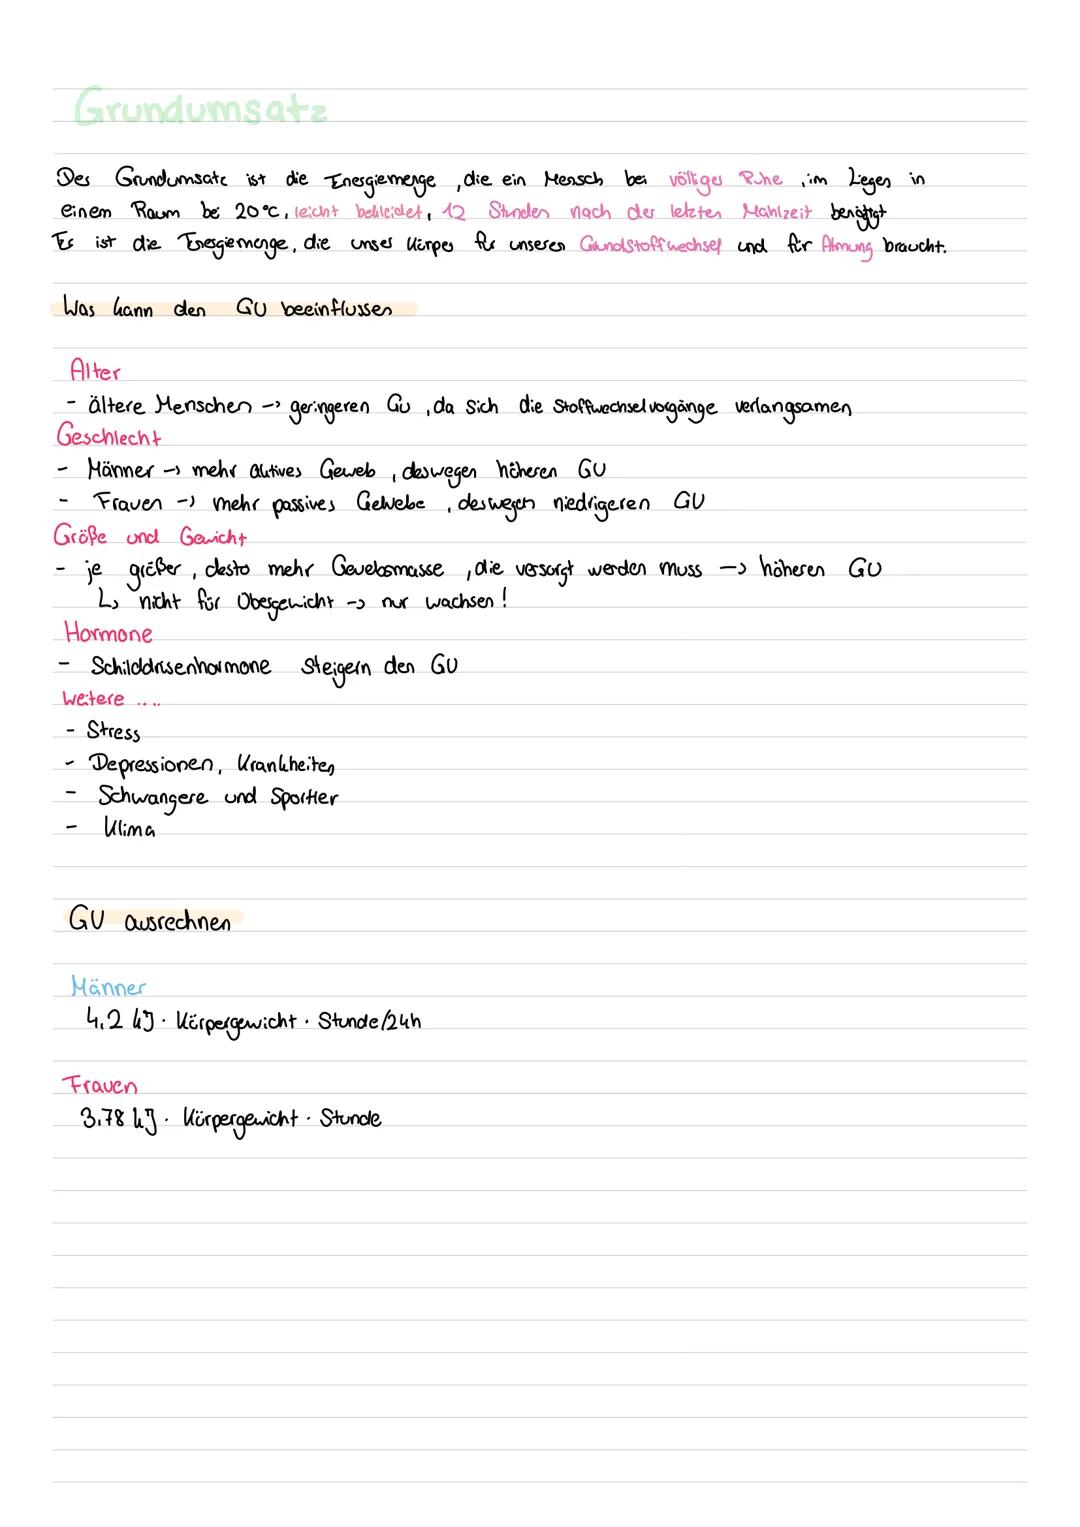 Grundumsatz
Der Grundumsatz ist die Energiemenge, die ein Mensch bei völliger Ruhe, im Liegen in
einem Raum bei 20°C, leicht bekleidet, 12 Stunden nach der letzten Mahlzeit benötigt
Es ist die Energiemenge, die unser Körper für unseren Grundstoffwechsel und für Atmung braucht.
Was kann den GU beeinflussen
Alter
- ältere Menschen -> geringeren GU, da sich die Stoffwechselvorgänge verlangsamen
Geschlecht
- Männer -> mehr aktives Geweb, deswegen höheren GU
- Frauen -> mehr passives Gewebe, deswegen niedrigeren GU
Größe und Gewicht
- je größer, desto mehr Gewebsmasse, die versorgt werden muss -> höheren GU
↳ nicht für Übergewicht -> nur wachsen!
Hormone
- Schilddrüsenhormone steigern den GU
Weitere ....
- Stress
- Depressionen, Krankheiten
- Schwangere und Sportler
- Klima
GU ausrechnen
Männer
4,2 kJ · Körpergewicht · Stunde/24h
Frauen
3,78 kJ · Körpergewicht · Stunde